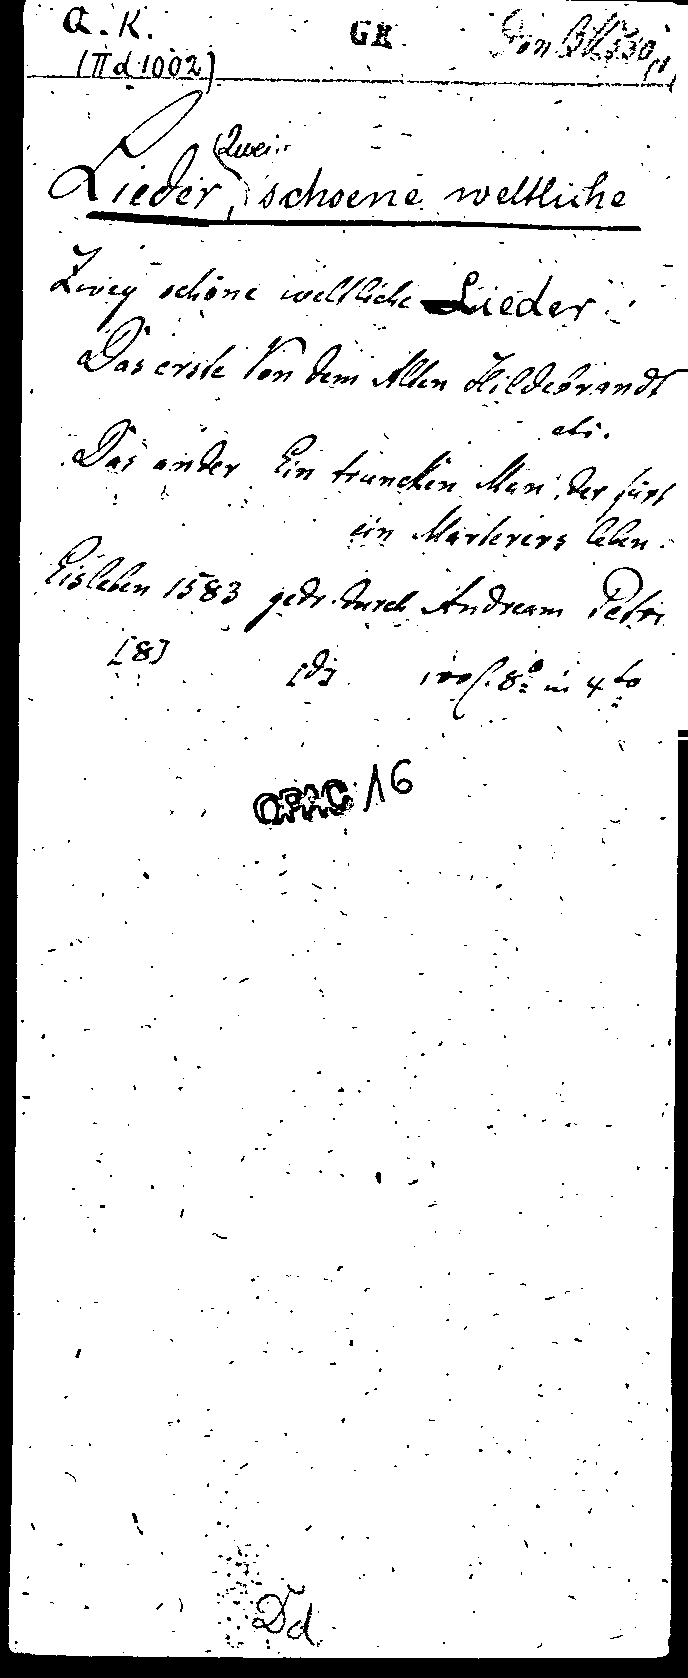 a. K. GK
(IId 1002)
Zwei
Lieder, schoene weltliche
Zwey schöne weltliche Lieder
Das erste Von dem Alten Hildebrandt
etc.
Das ander Ein truncken Man, der fürt
ein Marterers leben.
Eisleben 1583 gedr. durch Andream Petri
[8] [d] 8o in 4to
OPAC 16
Dd